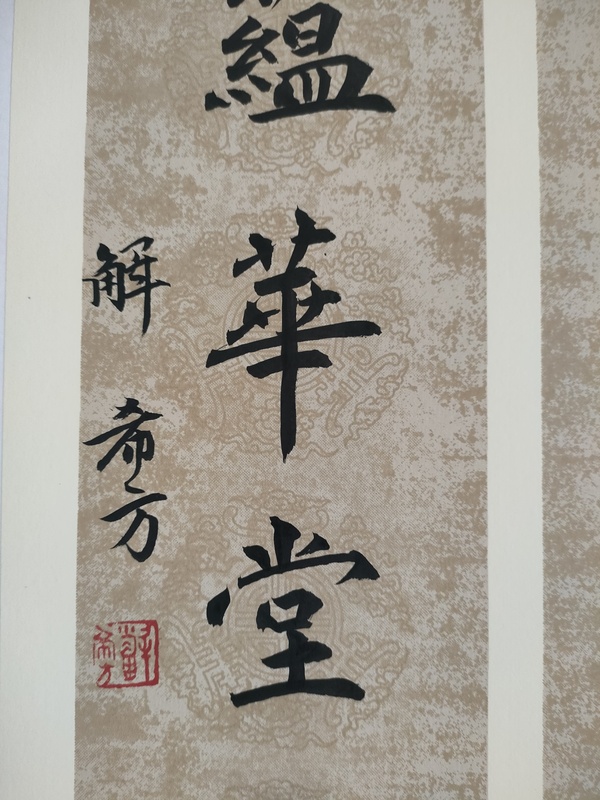 縕華堂
解希方
解希方